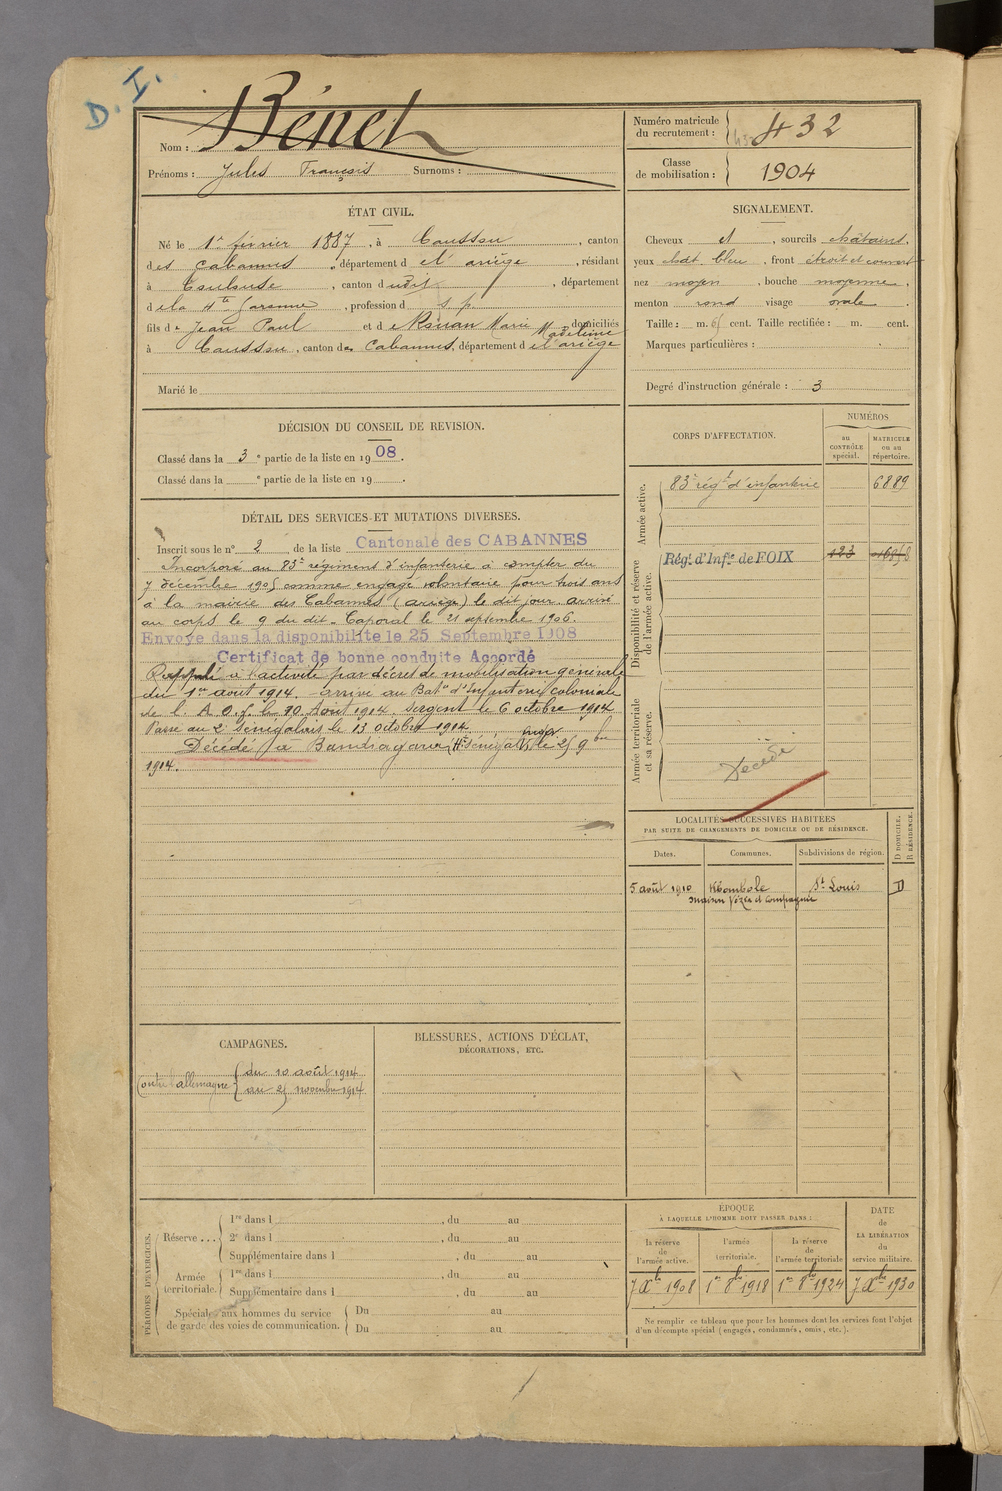 D. I.
Nom : Bénet
Prénoms : Jules François Surnoms :
Numéro matricule
du recrutement : 432
Classe
de mobilisation : 1904
ÉTAT CIVIL.
Né le 1er février 1887, à Caussou, canton
des Cabannes, département de l'ariège, résidant
à Toulouse, canton dudit, département
de la Hte Garonne, profession d s. p.
fils de Jean Paul et de Rouan Marie Madeleine domiciliés
à Caussou, canton des Cabannes, département de l'ariège
Marié le
SIGNALEMENT.
Cheveux et, sourcils châtains,
yeux chât. bleu, front étroit et couvert
nez moyen, bouche moyenne,
menton rond visage ovale.
Taille : m. 65 cent. Taille rectifiée : m. cent.
Marques particulières :
Degré d'instruction générale : 3
DÉCISION DU CONSEIL DE REVISION.
Classé dans la 3e partie de la liste en 1908.
Classé dans la e partie de la liste en 19 .
DÉTAIL DES SERVICES ET MUTATIONS DIVERSES.
Inscrit sous le n° 2 de la liste Cantonale des CABANNES
Incorporé au 83e régiment d'infanterie à compter du
7 décembre 1905 comme engagé volontaire pour trois ans
à la mairie des Cabannes (ariège) le dit jour. arrivé
au corps le 9 du dit. Caporal le 21 septembre 1906.
Envoyé dans la disponibilité le 25 Septembre 1908
Certificat de bonne conduite Accordé
Rappelé à l'activité par décret de mobilisation générale
du 1er aout 1914. arrivé au Baton d'Infanterie coloniale
de l'A. O. f. le 10 Août 1914. Sergent le 6 octobre 1914
Passé au 2e Sénégalais le 13 octobre 1914.
Décédé à Bandiagara Ht Sénégal Niger le 25 9bre
1914.
CORPS D'AFFECTATION.
NUMÉROS
au
CONTRÔLE
spécial.
MATRICULE
ou au
répertoire.
Armée active.
83e régt d'infanterie 6889
Disponibilité et réserve
de l'armée active.
Régt. d'Infie de FOIX 123
Armée territoriale
et sa réserve.
Décédé
LOCALITÉS SUCCESSIVES HABITÉES
PAR SUITE DE CHANGEMENTS DE DOMICILE OU DE RÉSIDENCE.
D DOMICILE.
R RÉSIDENCE.
Dates. Communes. Subdivisions de région.
5 août 1910 Khombole St Louis D
maison Vézia et compagnie
CAMPAGNES.
Contre l'allemagne
du 10 août 1914
au 25 novembre 1914
BLESSURES, ACTIONS D'ÉCLAT,
DÉCORATIONS, ETC.
PÉRIODES D'EXERCICES.
Réserve ...
1re dans l , du au
2e dans l , du au
Supplémentaire dans l , du au
Armée
territoriale.
1re dans l , du au
Supplémentaire dans l , du au
Spéciale aux hommes du service
de garde des voies de communication.
Du au
Du au
ÉPOQUE
À LAQUELLE L'HOMME DOIT PASSER DANS :
la réserve
de
l'armée active.
l'armée
territoriale.
la réserve
de
l'armée territoriale
DATE
de
LA LIBÉRATION
du
service militaire.
7 Xbre 1908 1er 8bre 1918 1er 8bre 1924 7 Xbre 1930
Ne remplir ce tableau que pour les hommes dont les services font l'objet
d'un décompte spécial (engagés, condamnés, omis, etc.).